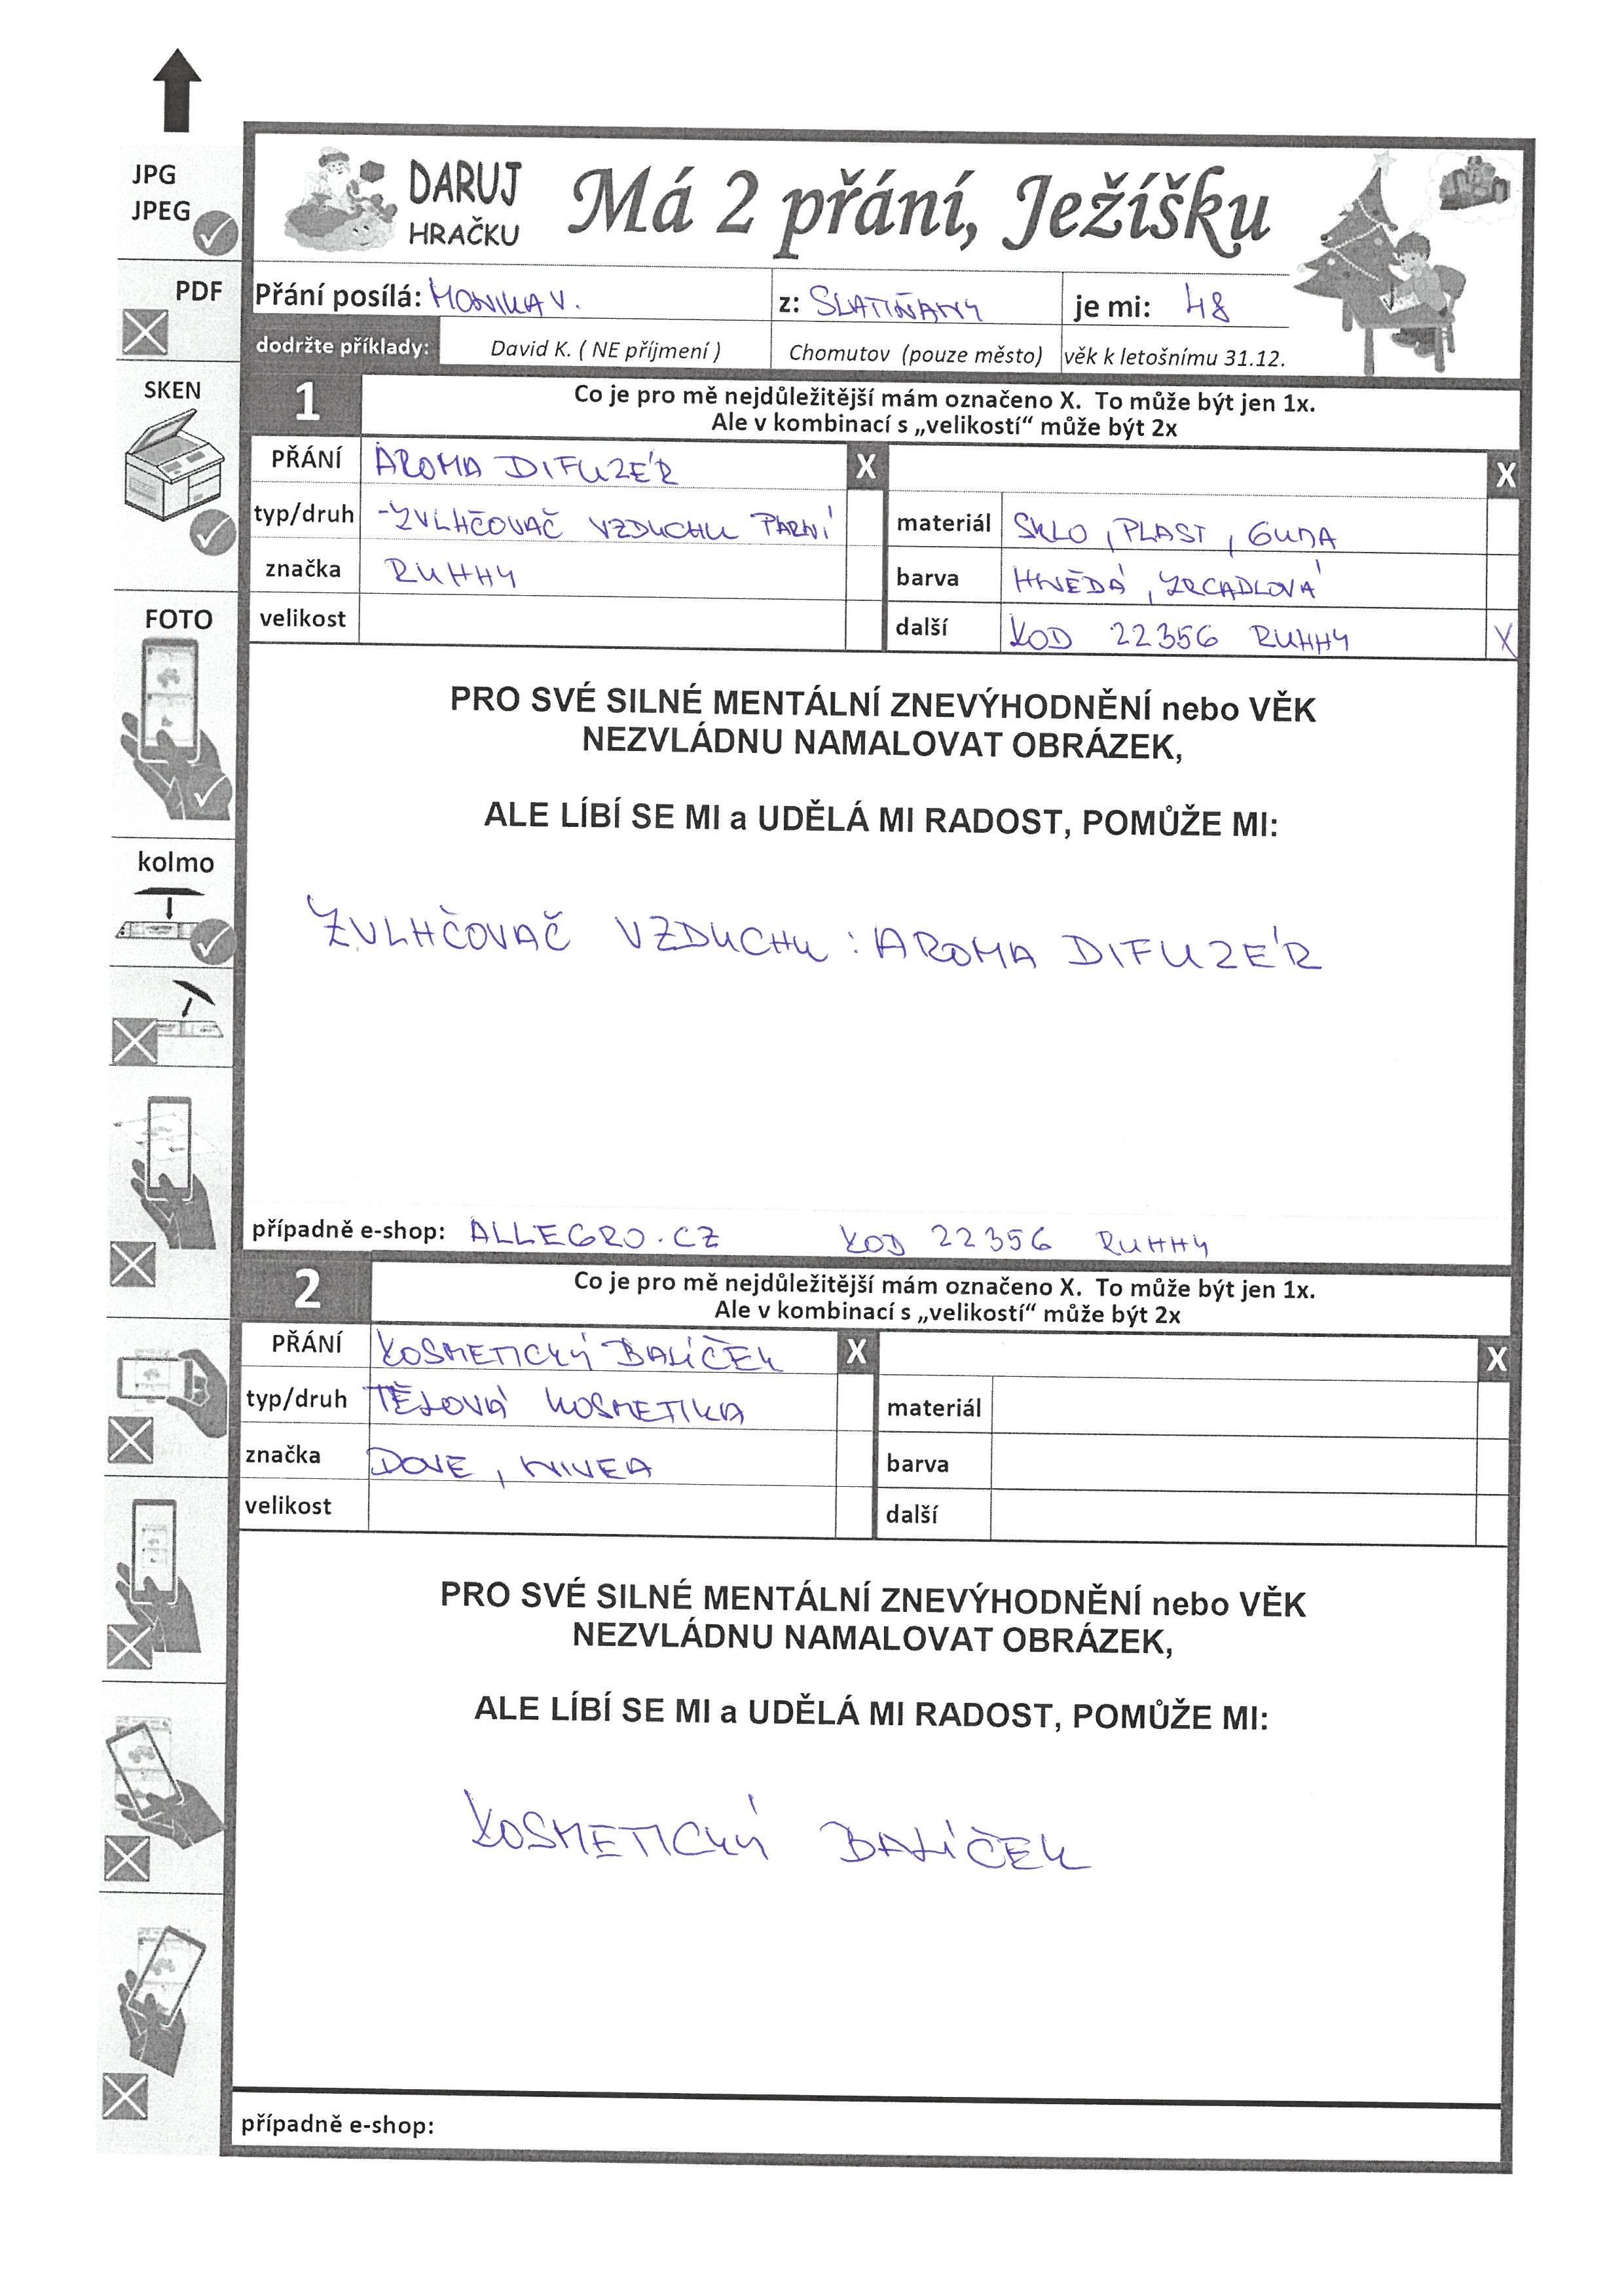 JPG
JPEG
PDF
SKEN
FOTO
kolmo
DARUJ
HRAČKU
Má 2 přání, Ježíšku
Přání posílá: MONIKA V. z: SLATIŇANY je mi: 48
dodržte příklady: David K. ( NE příjmení ) Chomutov (pouze město) věk k letošnímu 31.12.
1 Co je pro mě nejdůležitější mám označeno X. To může být jen 1x.
Ale v kombinací s „velikostí“ může být 2x
PŘÁNÍ AROMA DIFUZÉR X X
typ/druh -ZVLHČOVAČ VZDUCHU PARNÍ materiál SKLO, PLAST, GUMA
značka RUHHY barva HNĚDÁ, ZRCADLOVÁ
velikost další KOD 22356 RUHHY X
PRO SVÉ SILNÉ MENTÁLNÍ ZNEVÝHODNĚNÍ nebo VĚK
NEZVLÁDNU NAMALOVAT OBRÁZEK,
ALE LÍBÍ SE MI a UDĚLÁ MI RADOST, POMŮŽE MI:
ZVLHČOVAČ VZDUCHU : AROMA DIFUZÉR
případně e-shop: ALLEGRO.CZ KOD 22356 RUHHY
2 Co je pro mě nejdůležitější mám označeno X. To může být jen 1x.
Ale v kombinací s „velikostí“ může být 2x
PŘÁNÍ KOSMETICKÝ BALÍČEK X X
typ/druh TĚLOVÁ KOSMETIKA materiál
značka DOVE, NIVEA barva
velikost další
PRO SVÉ SILNÉ MENTÁLNÍ ZNEVÝHODNĚNÍ nebo VĚK
NEZVLÁDNU NAMALOVAT OBRÁZEK,
ALE LÍBÍ SE MI a UDĚLÁ MI RADOST, POMŮŽE MI:
KOSMETICKÝ BALÍČEK
případně e-shop: